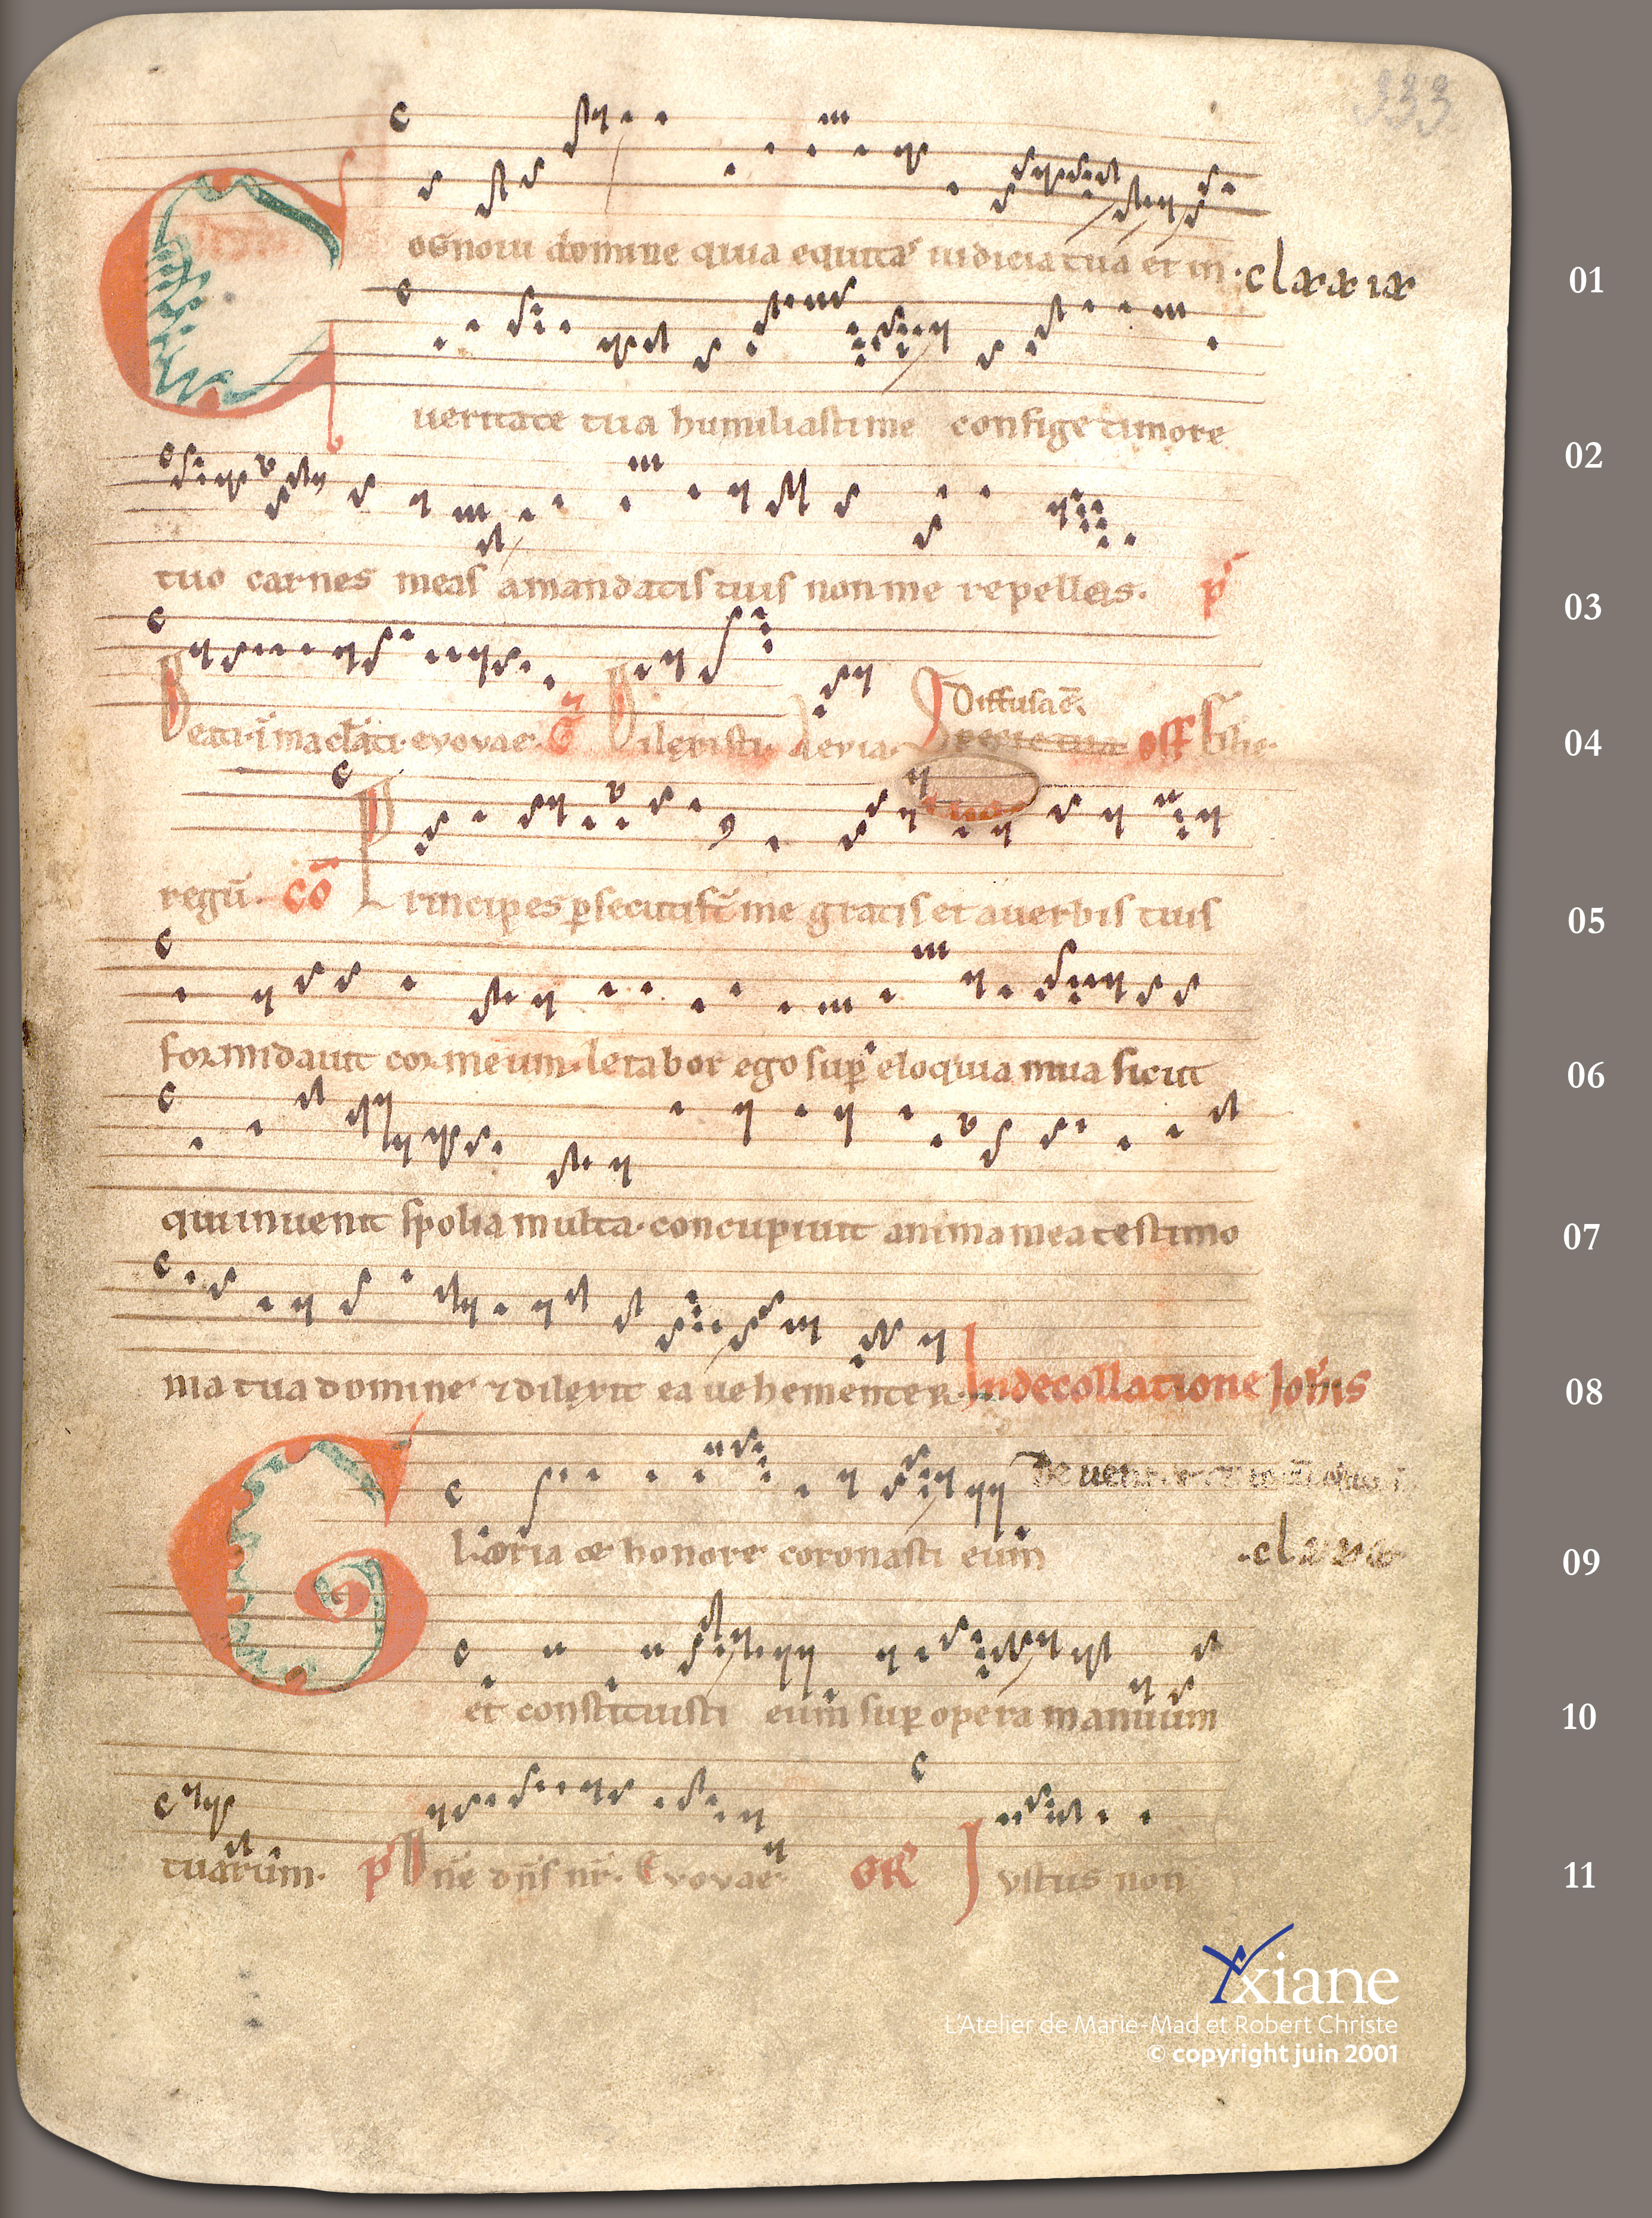 333
Cognoui domine quia equitas iudicia tua et in
01
ueritate tua humiliasti me confige timore
02
tuo carnes meas amandatis tuis non me repelleis. p
03
Beati.ĩ maclati.evovae. G Dilexisti. Diffusa ē. off Filie.
04
regũ. cō Principes psecuti st̃ me gratis et auerbis tuis
05
formidauit cor meum. letabor ego sup eloquia mua sicut
06
qui inuenit spolia multa. concupiuit anima mea testimo
07
nia tua domine ⁊ dilexit ea uehementer. In decollatione Johis
08
Gloria et honore coronasti eum
09
et constituisti eum sup opera manuum
10
tuarum. p Dñe dñs nr̃. Evovae. GR Justus non
11
Yxiane
L'Atelier de Marie-Mad et Robert Christe
© copyright juin 2001